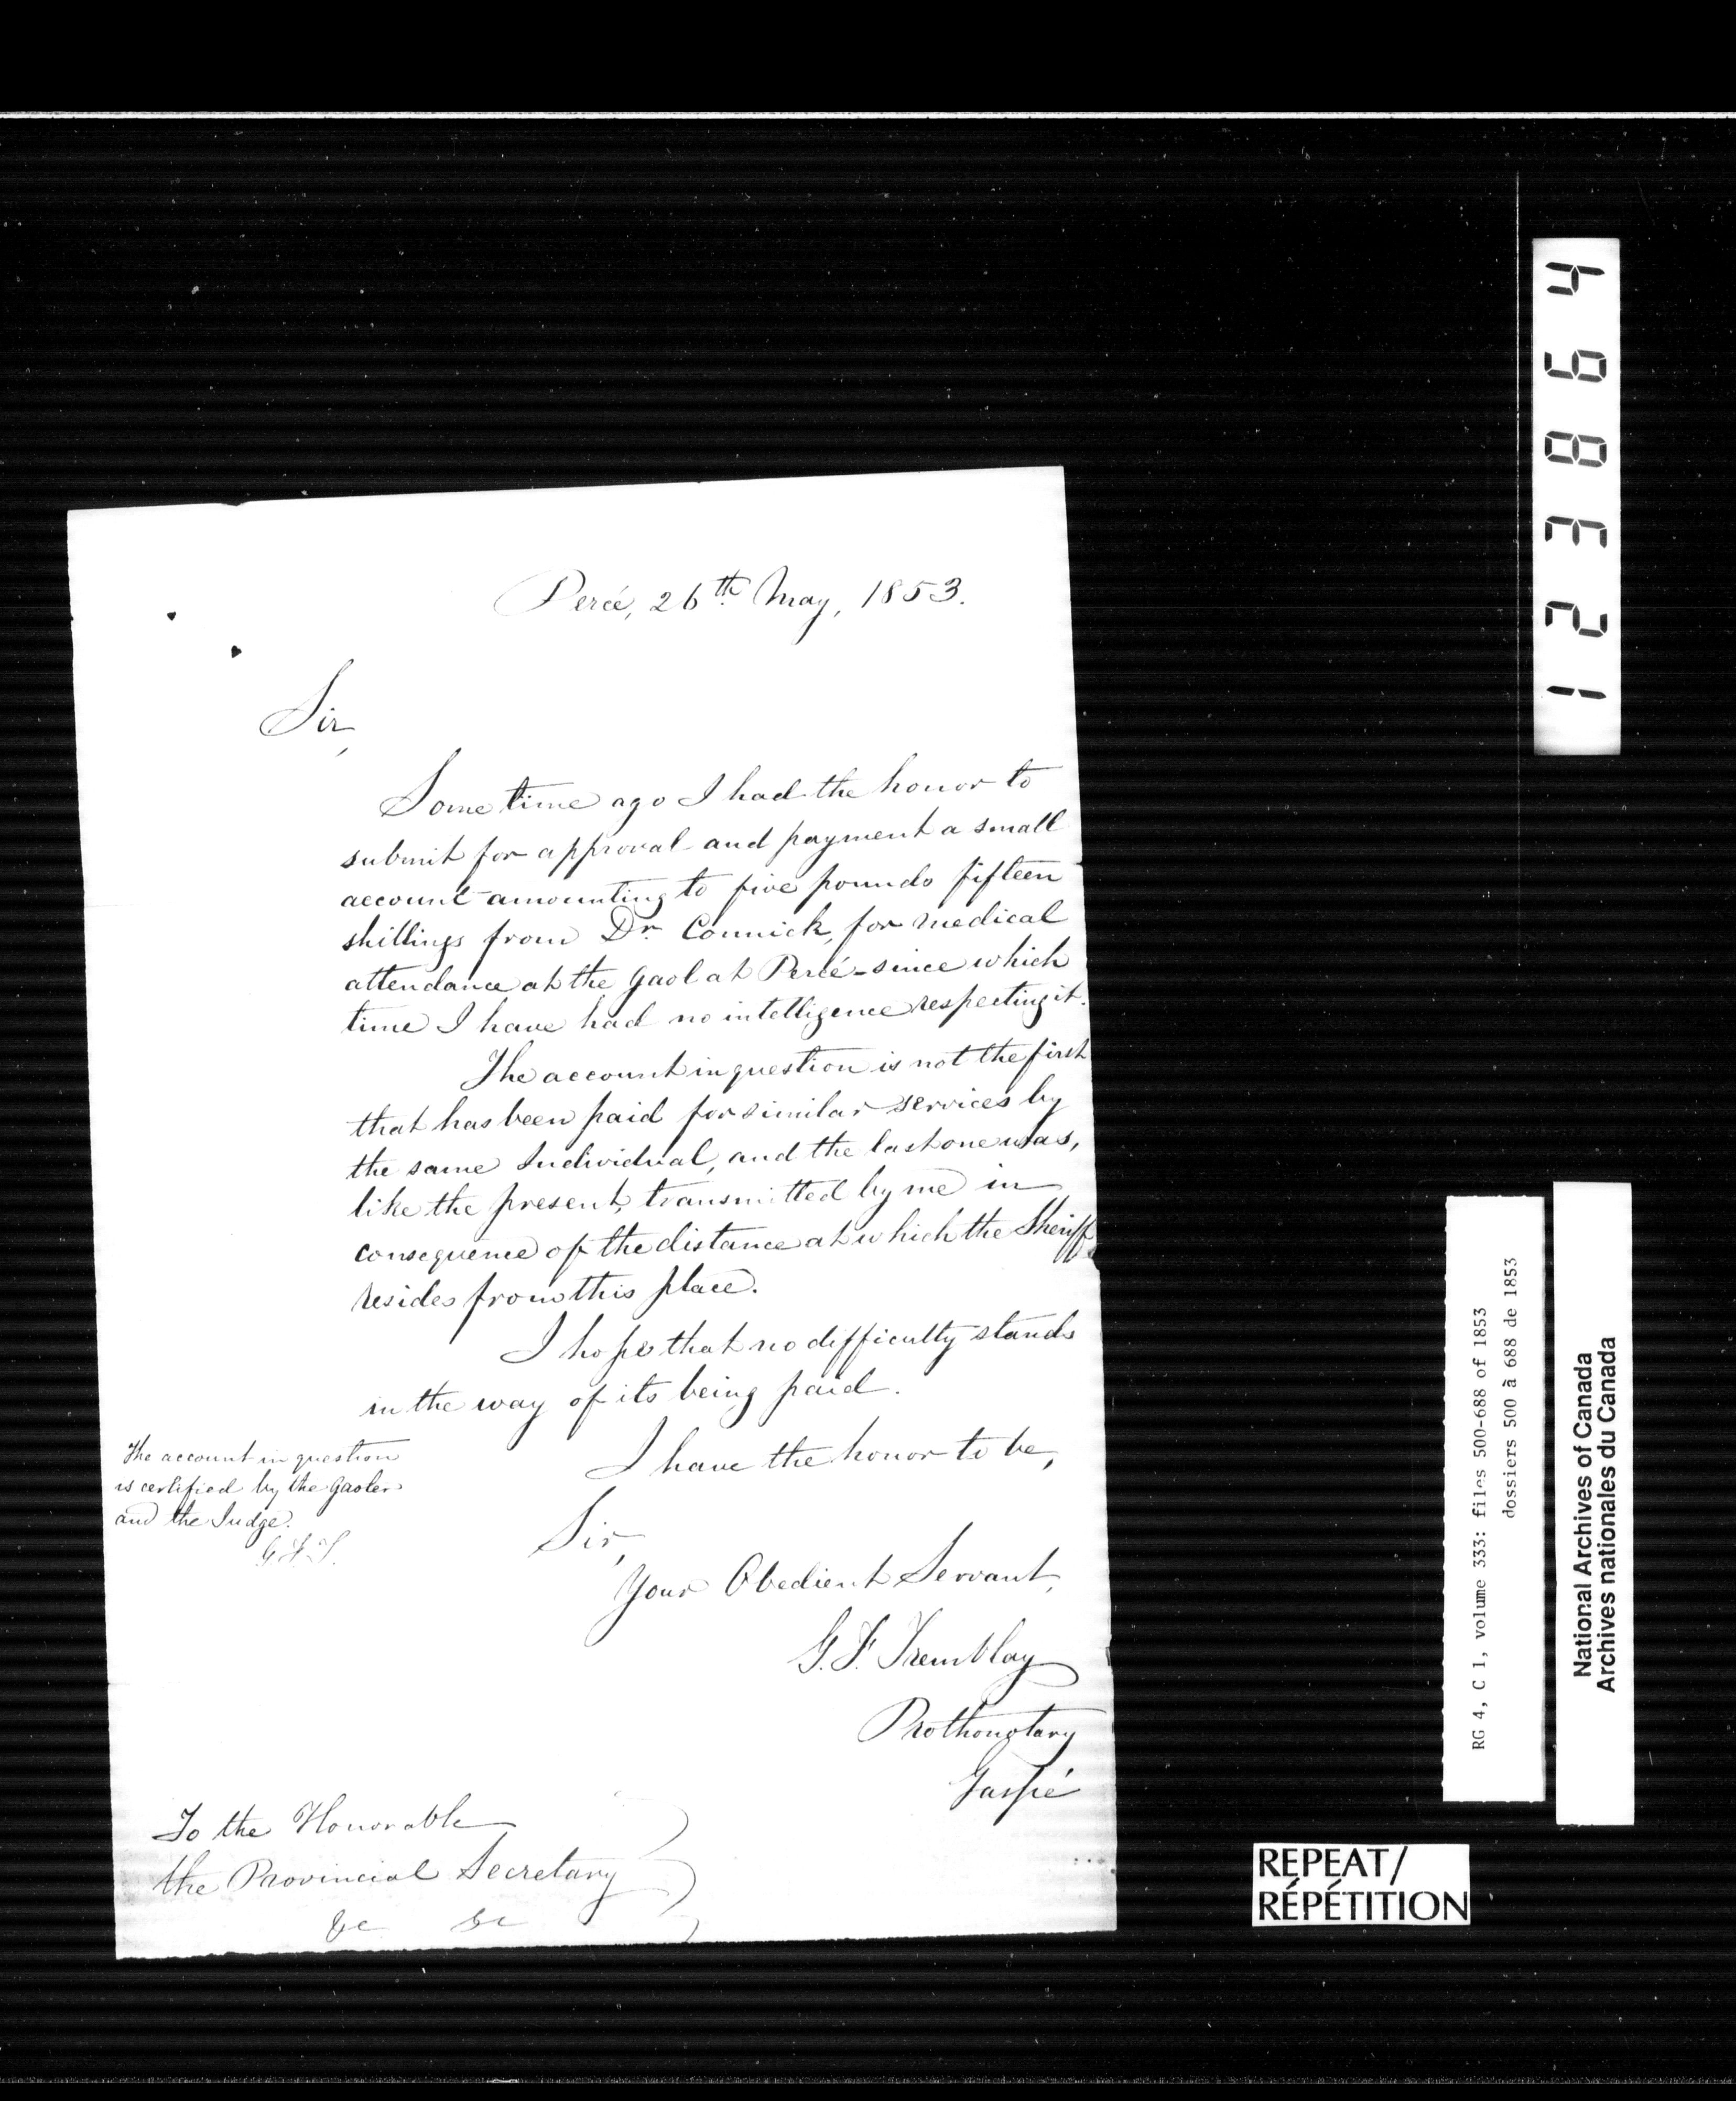 Percé, 26th May, 1853.
Sir,
Some time ago I had the honor to
submit for approval and payment a small
account amounting to five pounds fifteen
shillings from Dr. Connick, for medical
attendance at the Gaol at Percé - since which
time I have had no intelligence respecting it.
The account in question is not the first
that has been paid for similar services by
the same Individual, and the last one was,
like the present, transmitted by me in
consequence of the distance at which the Sheriff
resides from this place.
I hope that no difficulty stands
in the way of its being paid.
I have the honor to be,
Sir,
Your Obedient Servant,
G. F. Tremblay
Prothonotary
Gaspé
The account in question
is certified by the Gaoler
and the Judge.
G. F. T.
To the Honorable
the Provincial Secretary
&c &c
123864
RG 4, C 1, volume 333: files 500-688 of 1853
dossiers 500 à 688 de 1853
National Archives of Canada
Archives nationales du Canada
REPEAT/
RÉPÉTITION